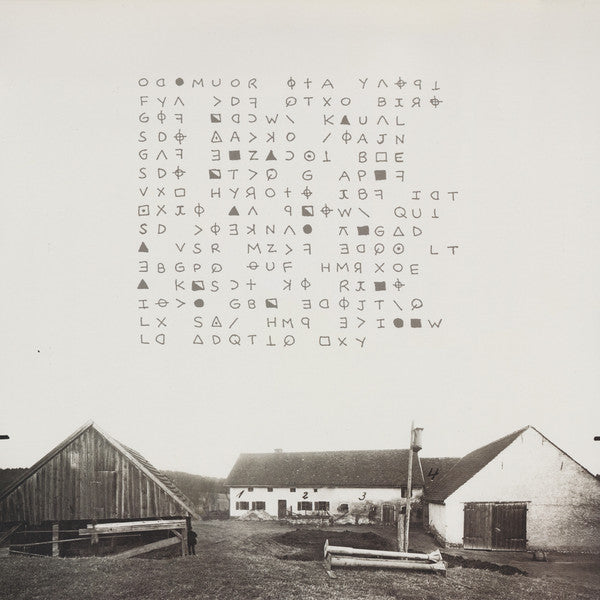 O ᗡ ● M U O R ϕ + A Y Λ ⌖ ꟼ ⊥
F Y Λ > D Ⅎ Q T X O B I Я ⌖
G ϕ Ⅎ ⬕ Ɔ C W \ K ▲ U A L
S D ⌖ ◬ A < K O / ϕ A J N
G A Ⅎ E ■ Z ▲ Ɔ ⊙ ⊥ B □ E
S D ⌖ ⬕ T > Q G A P ■ Ⅎ
V X □ H Y R O + ⌖ I B Ⅎ I D T
⊡ X I ϕ ▲ Λ ꟼ ⬕ ⌖ W \ Q U ⊥
S D > ϕ E K N Λ ● ⊼ ■ G Δ D
▲ V S R M Z > Ⅎ Ǝ D Q ⊙ L T
Ǝ B G P Q ⊖ U F H M Я X O E
▲ K ⬕ S Ɔ + K ϕ R I ■ ⌖
I ⊖ > ● G B ⬕ Ǝ D ϕ J T \ Q
L X S ◬ / H M ꟼ Ǝ > I ● ■ W
L ᗡ Δ D Q T ⊥ Q □ X Y
1 2 3 4